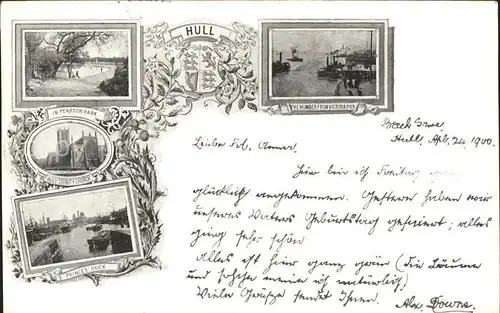 HULL
IN PEARSON PARK
THE HUMBER FROM VICTORIA PIER
HOLY TRINITY CHURCH
PRINCES DOCK
Hull, Apl. 24. 1900.
Liebe Frl. Anna.
Hier bin ich Freitag ganz
glücklich angekommen. Gestern haben wir
unseres Vaters Geburtstag gefeiert; alles
ging sehr schön.
Alles ist hier ganz grün (die Bäume
und solche meine ich natürlich).
Viele Grüsse sendet Ihnen.
Alex. Downs.